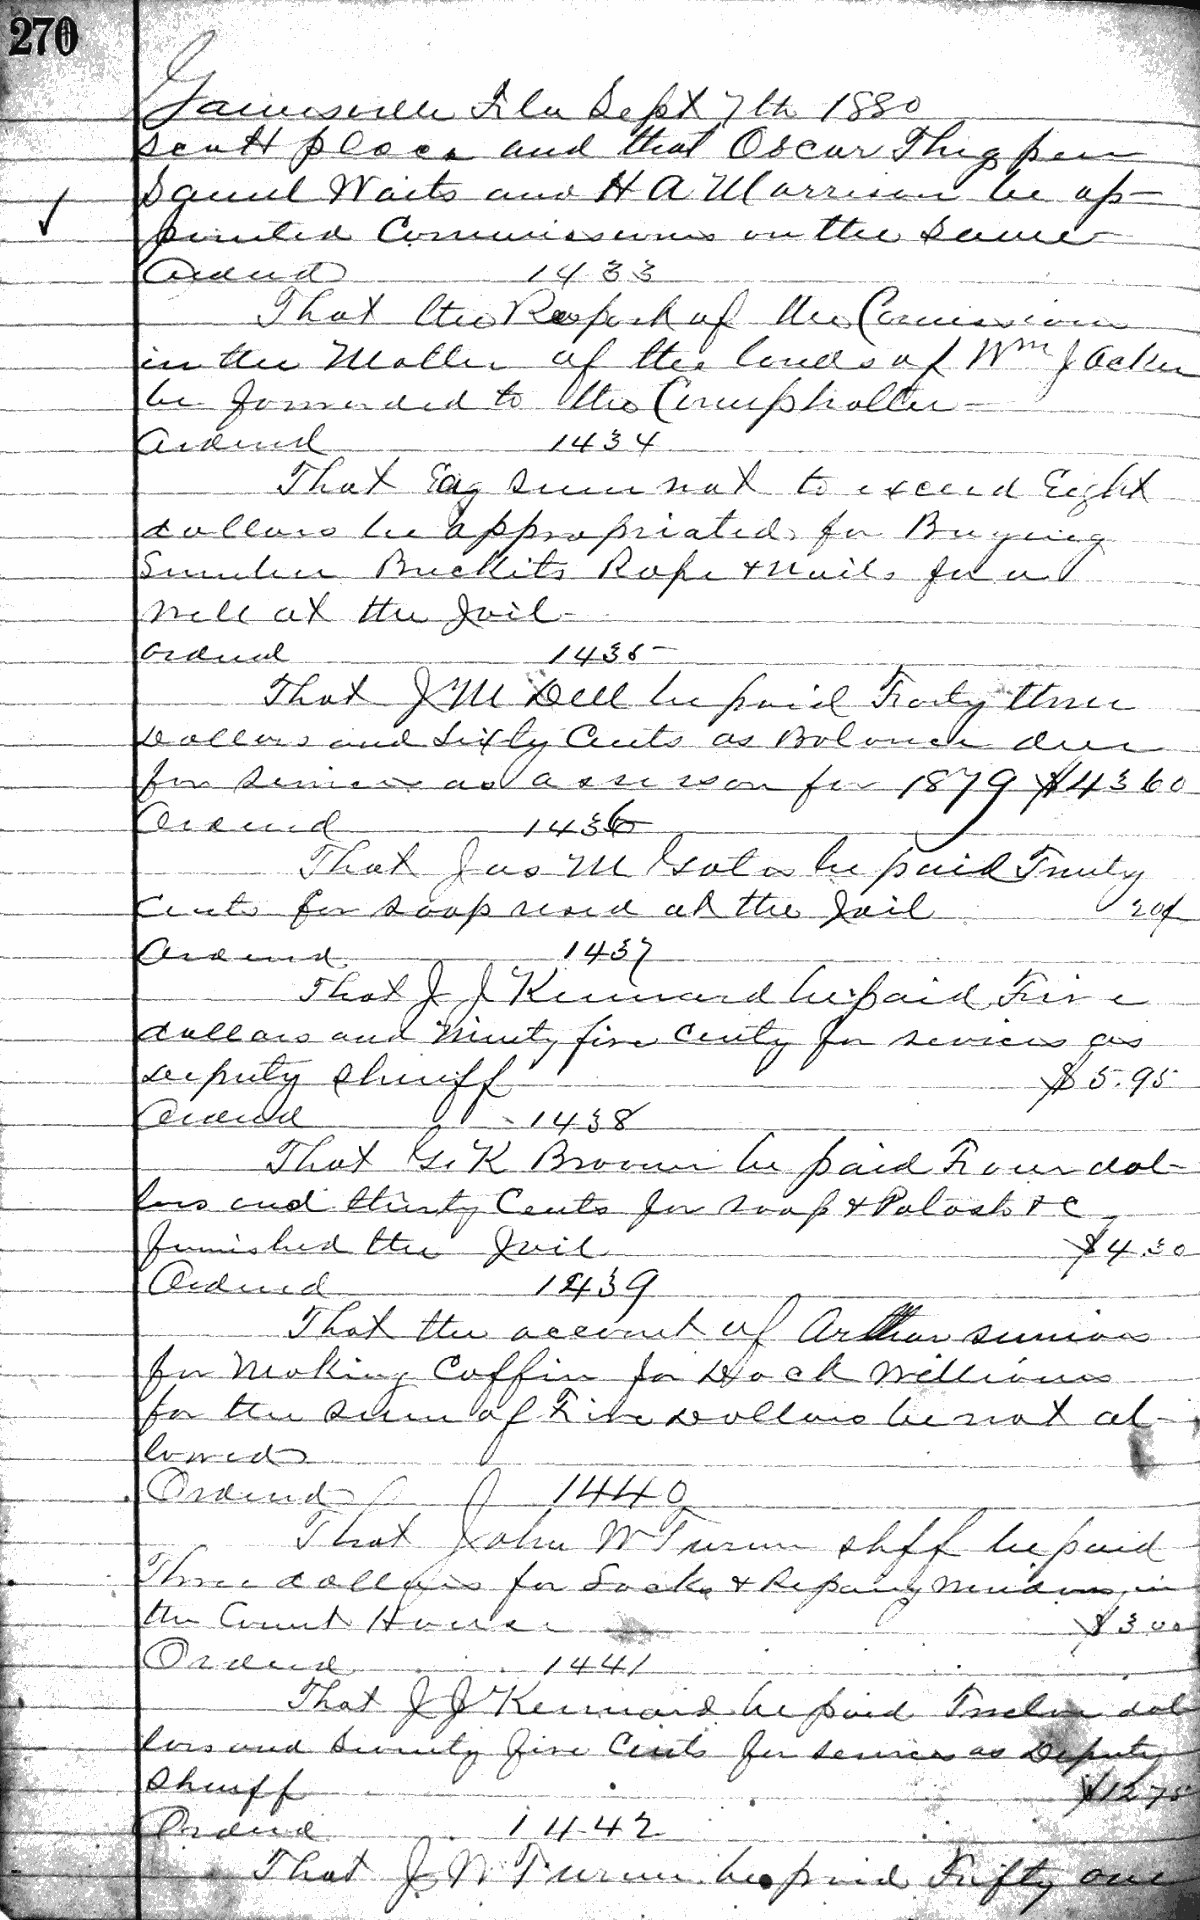 270
Gainesville Fla Sept 7th 1880
scott place and that Oscar Thigpen
Samul Waits and H A Morrison be ap-
pointed Commissioners on the same
Ordered 1433
That the Report of the Comissioners
in the Matter of the lands of Wm J Acker
be forwarded to the Comptroller -
Ordered 1434
That sum not to exceed Eight
dollars be appropriated for Buying
Buckits Rope & nails for a
well at the Jail -
ordered 1435
That J M Dell be paid Forty three
Dollars and Sixty Cents as Balance due
for services as assessor for 1879 $43 60
Ordered 1436
That Jas M be paid Twenty
Cents for soap used at the Jail 20¢
Ordered 1437
That J J Kennard be paid Five
dollars and Ninety five Cents for services as
Deputy Sheriff $5.95
Ordered 1438
That G. K Broome be paid Four dol-
lars and thirty Cents for soap & Potash & C
furnished the Jail $4.30
Ordered 1439
That the account of Arthur
for Making Coffin for Dock Williams
for the sum of Five Dollars be not al-
lowed
Ordered 1440
That John W Turner shff be paid
Three dollars for Locks & Repairing Windows in
the Court House $3 00
Ordered 1441
That J J Kennard be paid Twelve dol
lars and Seventy five Cents for services as Deputy
Sheriff $12 75
Ordered 1442
That J W Turner be paid Fifty one